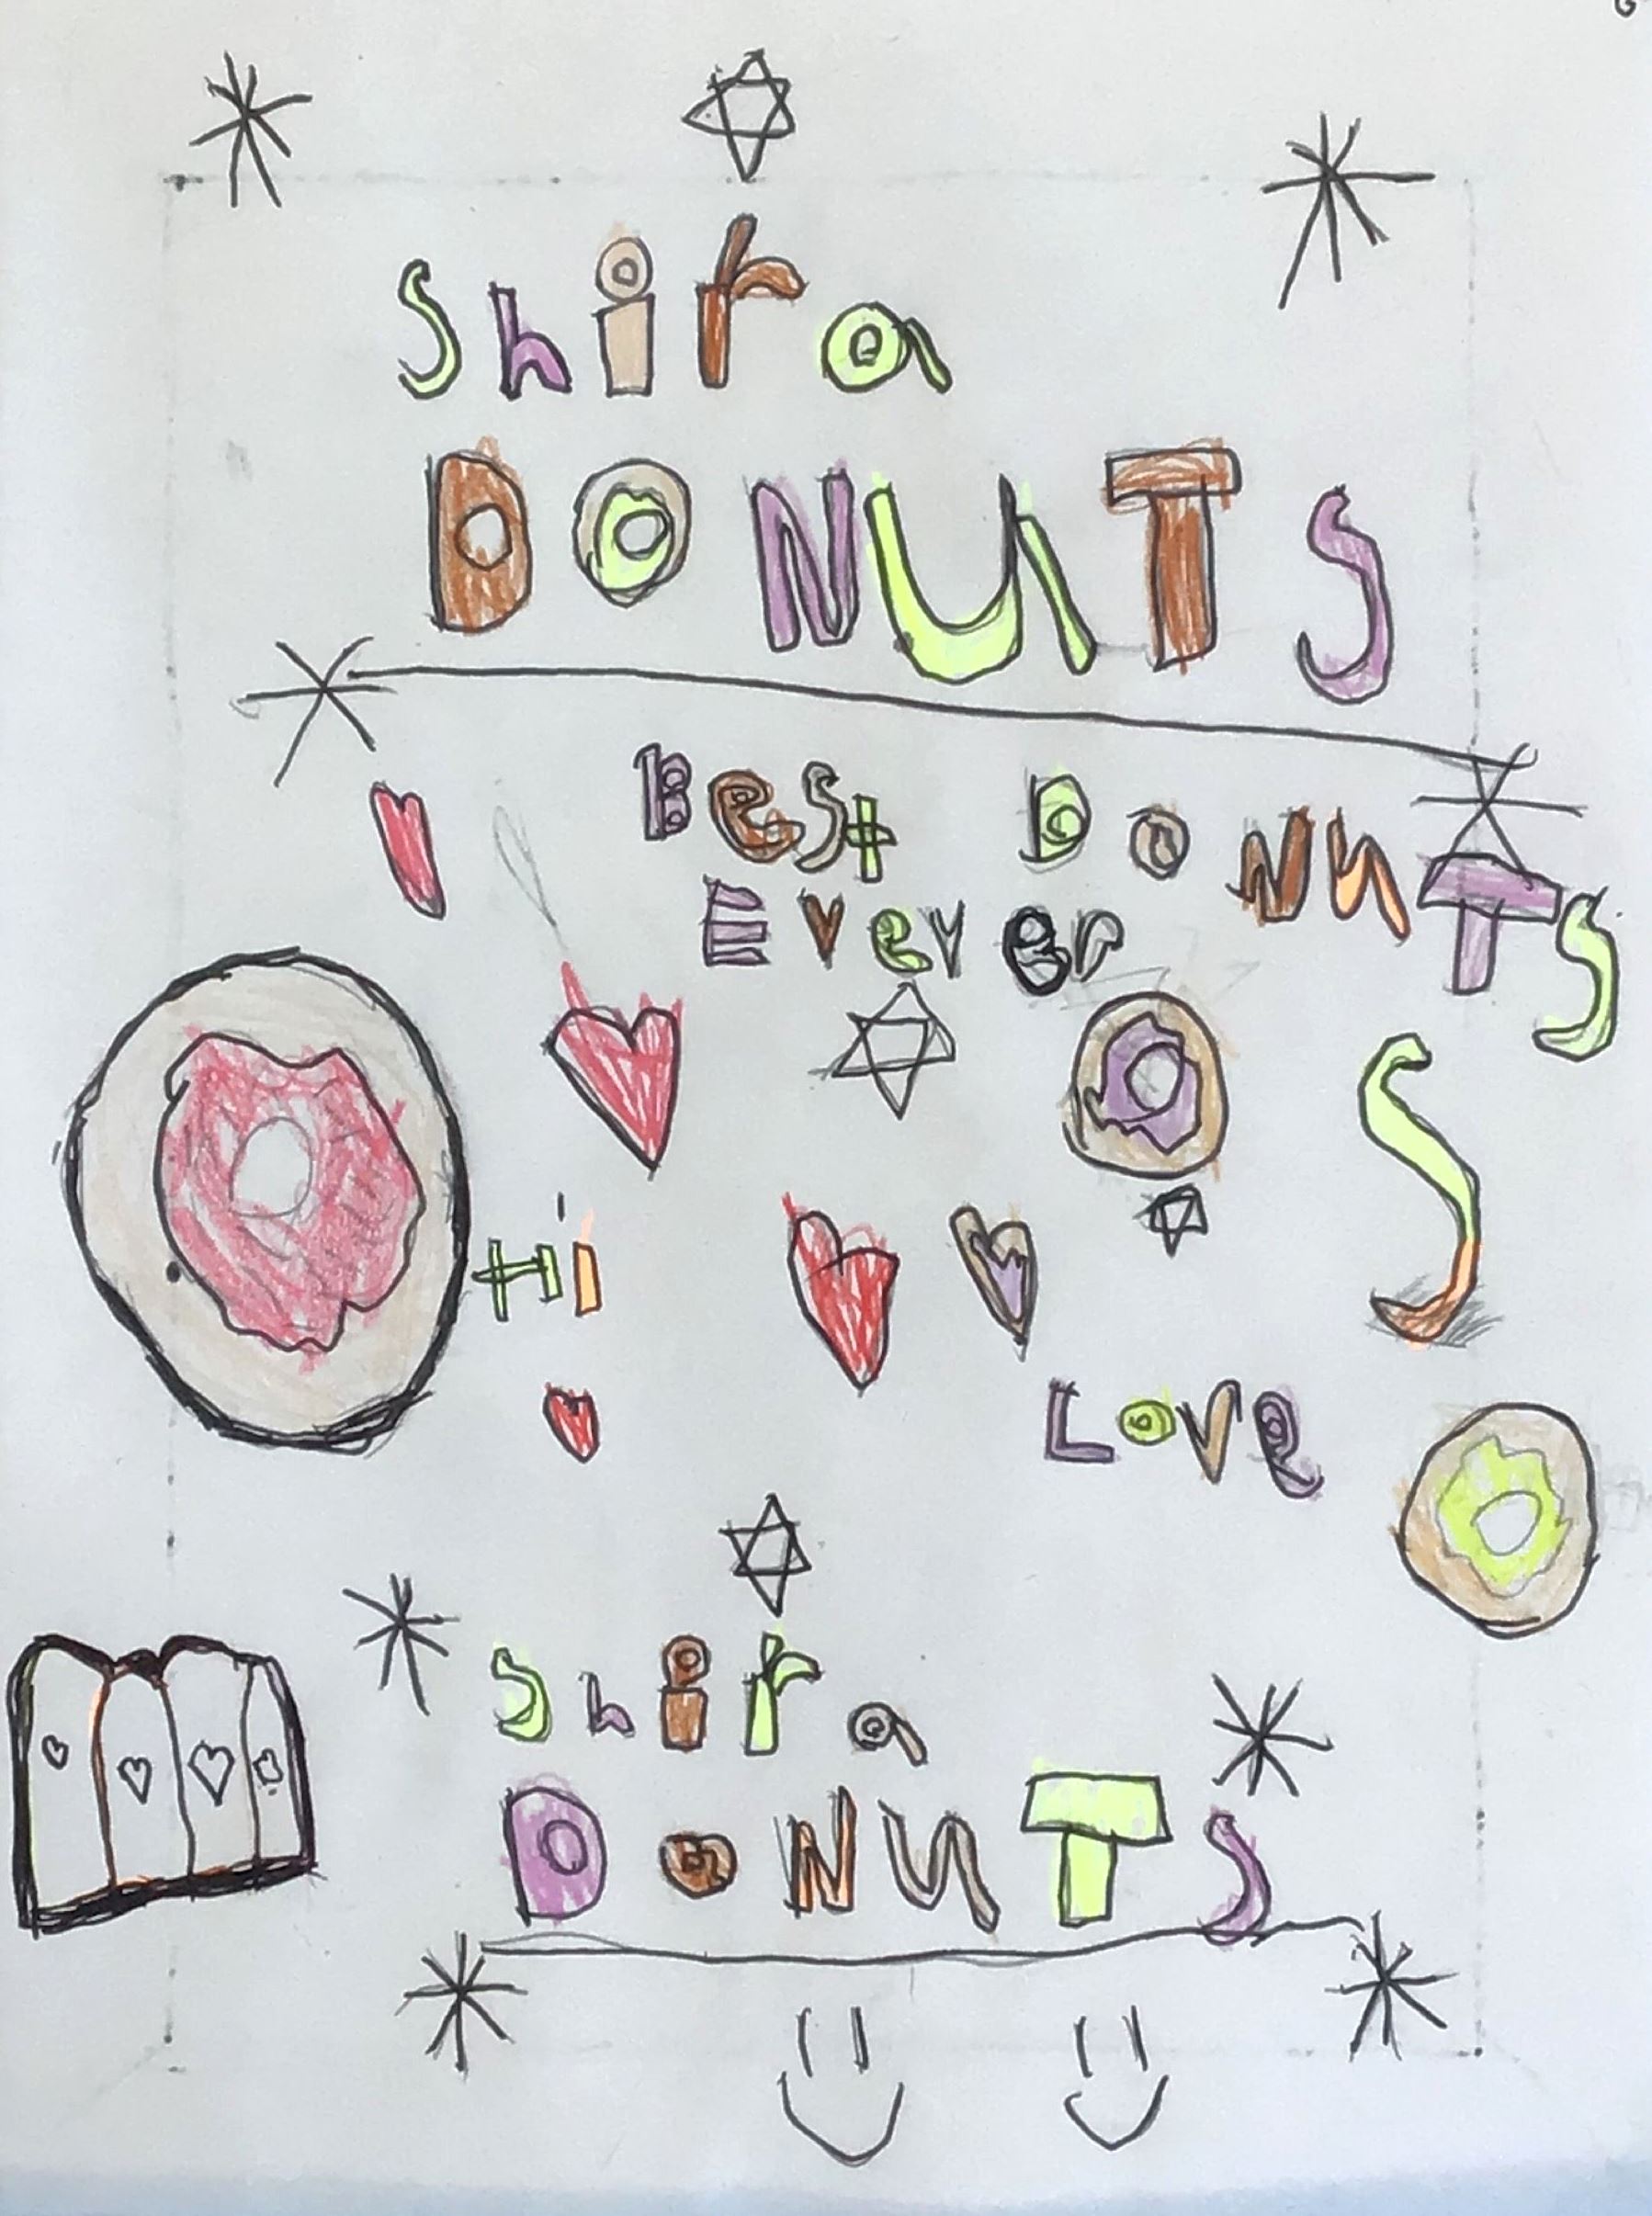 Shira
DONUTS
Best DoNuTS
Ever
S
Hi
Love
Shira
DoNuTS